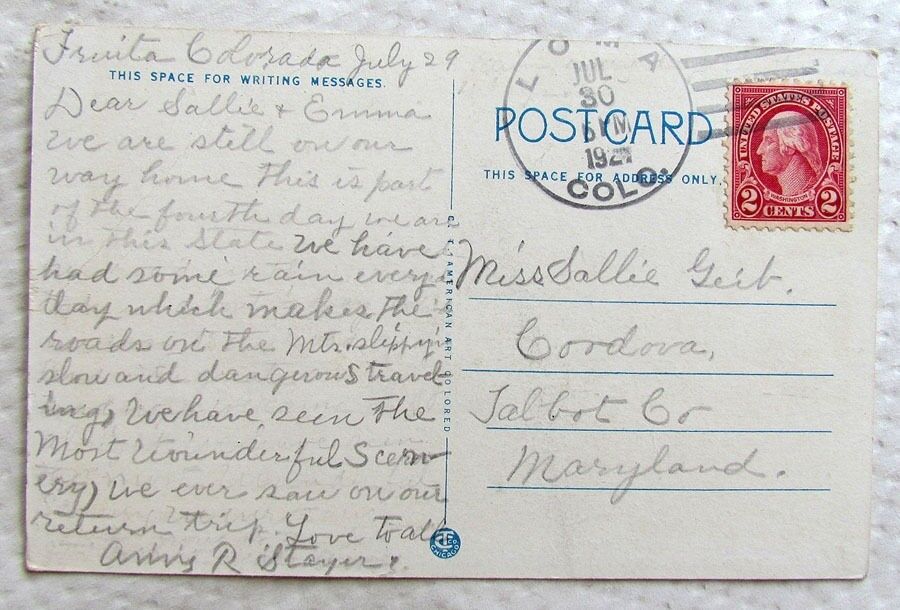 Fruita Colorado July 29
THIS SPACE FOR WRITING MESSAGES.
Dear Sallie & Emma
we are still on our
way home this is part
of the fourth day we are
in this State We have
had some rain every
day which makes the
roads on the Mts. slippy
slow and dangerous travel-
ing, We have seen the
Most Wounderful Scen-
ery, We ever saw on our
return trip. Love to all
R Stayer
C. T. AMERICAN ART COLORED
CHICAGO
LOMA
JUL
30
PM
COLO.
POST CARD
THIS SPACE FOR ADDRESS ONLY.
UNITED STATES POSTAGE
WASHINGTON
2 CENTS 2
Miss Sallie Geib.
Cordova,
Talbot Co
Maryland.